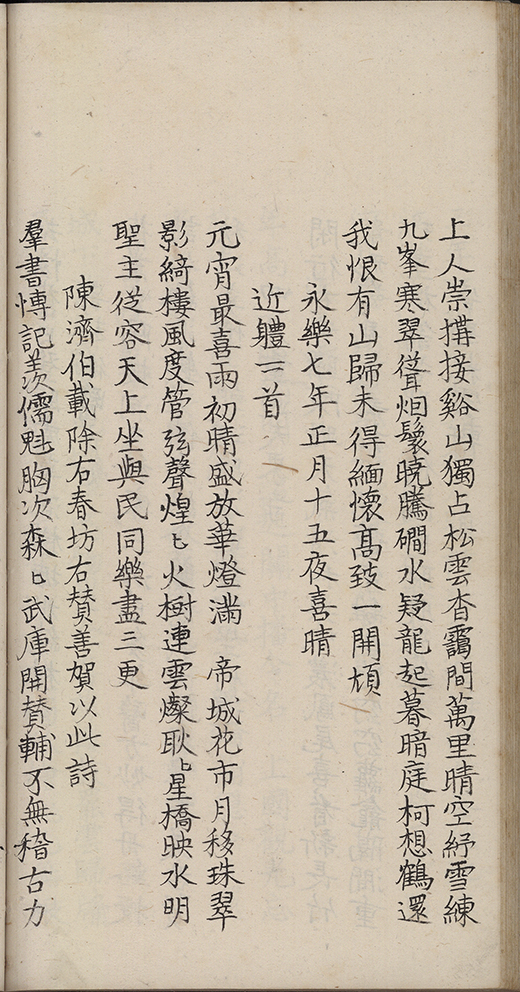 上人崇搆接谿山獨占松雲杳靄間萬里晴空紓雪練
九峯寒翠聳烟鬟曉騰磵水疑龍起暮暗庭柯想鶴還
我恨有山歸未得緬懷髙致一開頄
永樂七年正月十五夜喜晴
近軆一首
元宵最喜雨初晴盛放華燈滿 帝城花市月移珠翠
影綺樓風度管弦聲煌〻火樹連雲燦耿〻星橋映水明
聖主從容天上坐與民同樂盡三更
陳濟伯載除右春坊右贊善賀以此詩
羣書愽記羡儒魁胸次森〻武庫開贊輔不無稽古力